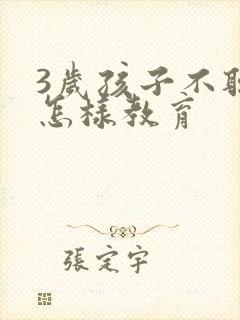 3歲孩子不聽
怎樣教育
張定宇